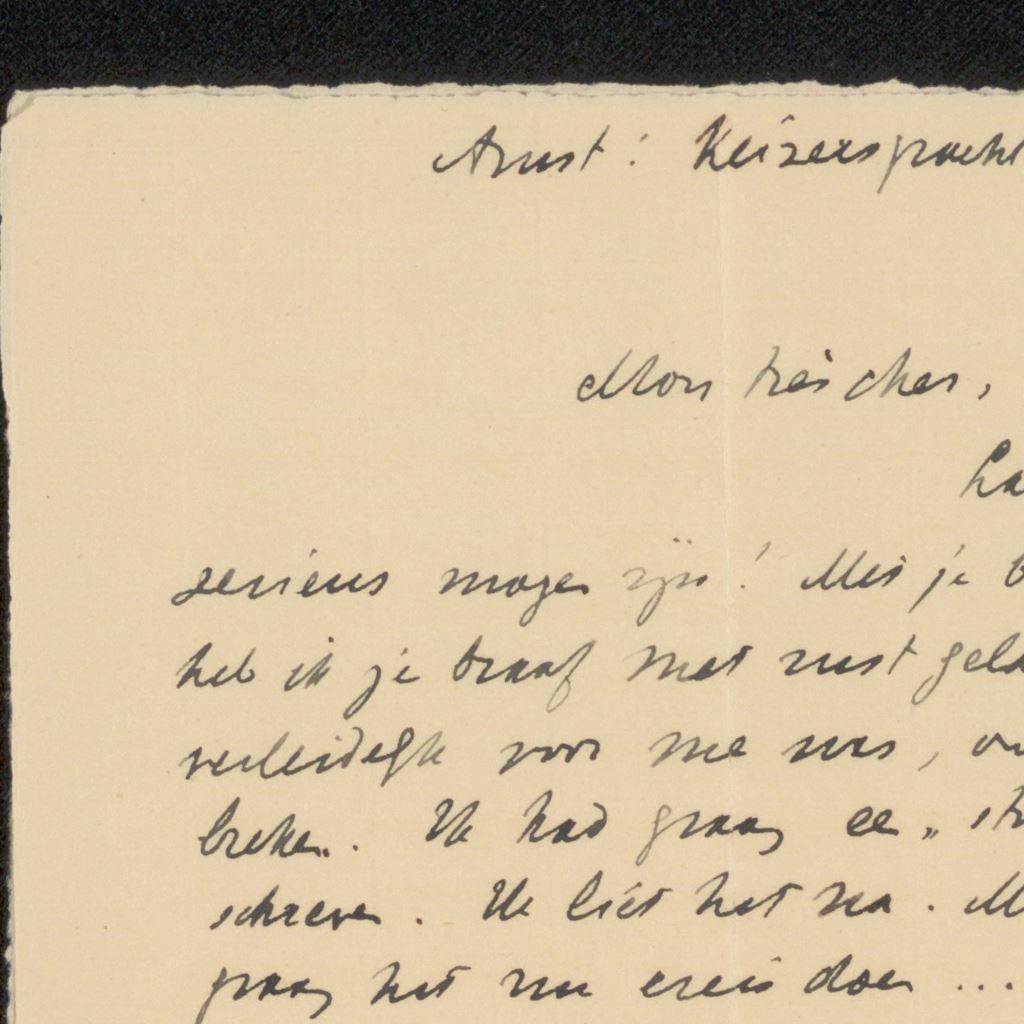 Amst: Keizersgracht
Mon très cher,
La
serieus mogen zijn! Met je b
heb ik je braaf met rust gela
verleidelijk voor me was, o
breken. Ik had graag een „ str
schreven. Ik liet het na. M
graag het nu ereis doen ...